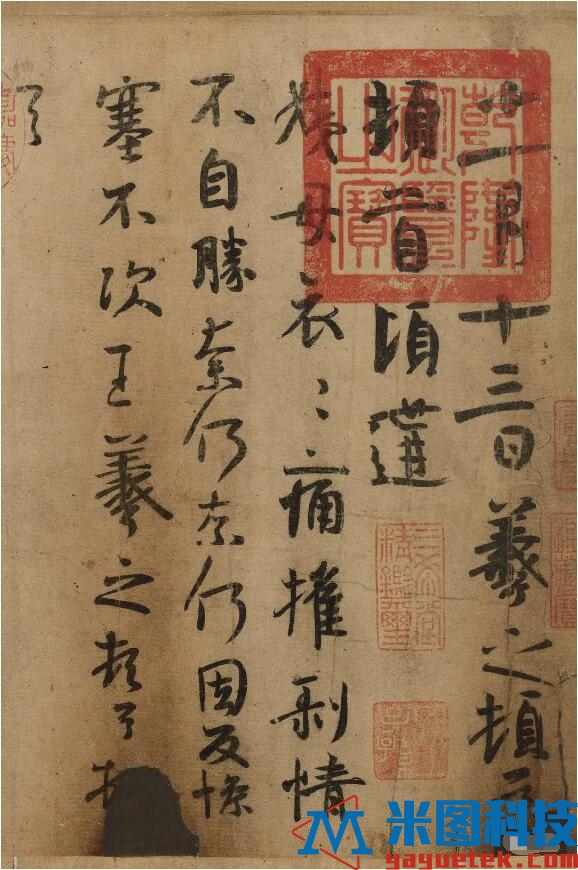 十一月十三日羲之頓首
頓首頃遘
姨母哀〻痛摧剝情
不自勝奈何奈何因反慘
塞不次王羲之頓首頓
首
乾隆
御覽
之寶
三希堂
精鑑璽
米图科技
yayuetek.com